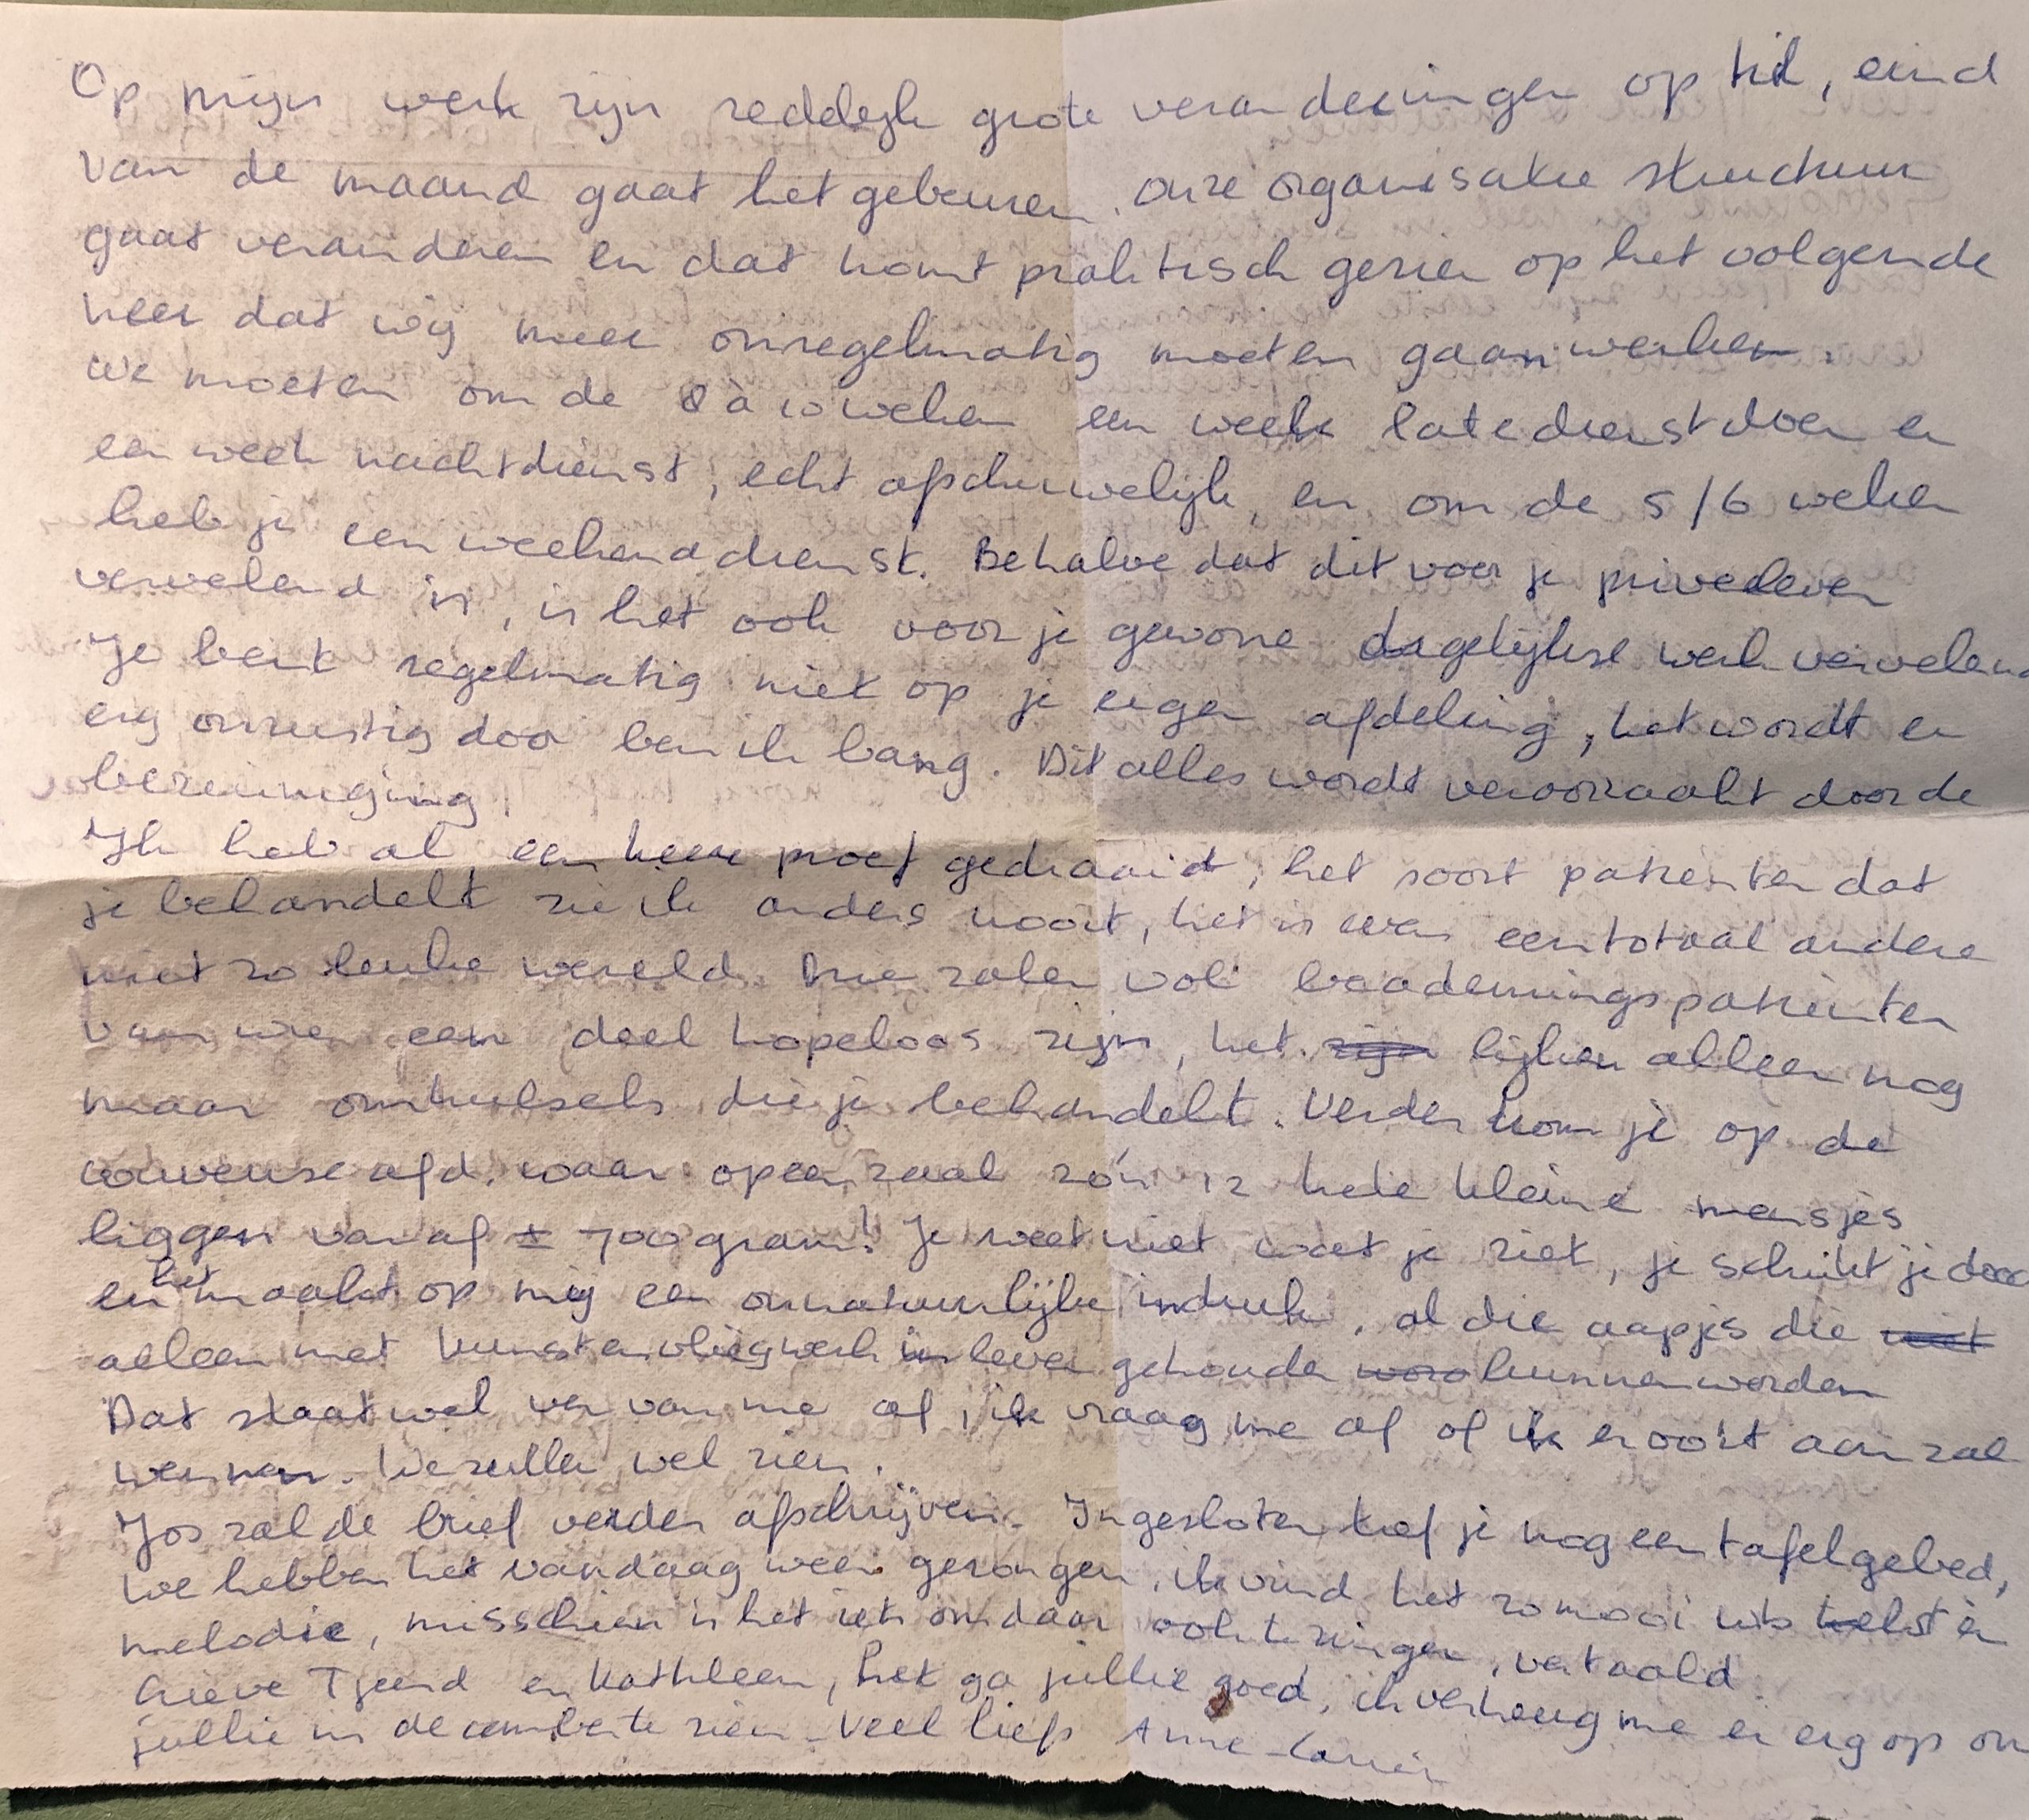 Op mijn werk zijn redelijk grote veranderingen op til, eind
van de maand gaat het gebeuren. onze organisatie structuur
gaat veranderen en dat komt praktisch gezien op het volgende
neer dat wij meer onregelmatig moeten gaan werken.
We moeten om de 8 à 10 weken een week late dienst doen en
een week nachtdienst, echt afschuwelijk, en om de 5/6 weken
heb je een weekenddienst. Behalve dat dit voor je privéleven
vervelend is, is het ook voor je gewone dagelijkse werk vervelend
Je bent regelmatig niet op je eigen afdeling, het wordt er
erg onrustig door ben ik bang. Dit alles wordt veroorzaakt door de
bezuiniging.
Ik heb al een keer proef gedraaid, het soort patienten dat
je behandelt zie ik anders nooit, het is even een totaal andere
niet zo leuke wereld. Drie zalen vol beademingspatienten
van wie een deel hopeloos zijn, het zijn lijken alleen nog
maar omhulsels die je behandelt. Verder kom je op de
couveuse afd. waar op een zaal zo'n 12 hele kleine mensjes
liggen vanaf ± 700 gram! Je weet niet wat je ziet, je schrikt je dood
en het maakt op mij een onnatuurlijke indruk, al die aapjes die niet
alleen met kunst en vliegwerk in leven gehouden word kunnen worden
Dat staat wel ver van me af, ik vraag me af of ik er ooit aan zal
wennen. We zullen wel zien.
Jos zal de brief verder afschrijven. Ingesloten tref je nog een tafelgebed,
we hebben het vandaag weer gezongen, ik vind het zo mooi tekst en
melodie, misschien is het iets om daar ook te zingen, vertaald.
Lieve Tjeerd en Kathleen, het ga jullie goed, ik verheug me er erg op om
jullie in december te zien. Veel liefs Anne-